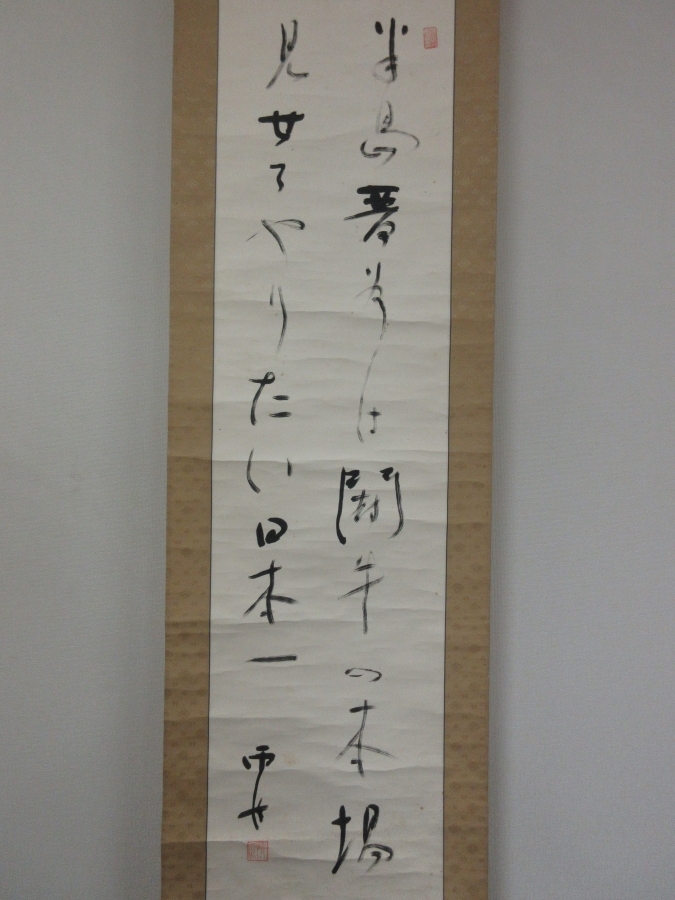 半島晋州は闘牛の本場
見せてやりたい日本一
雨情